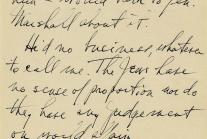 Marshall about it.
He'd no business, whatever
to call me. The Jews have
no sense of proportion nor do
they have any judgement
on world affairs.